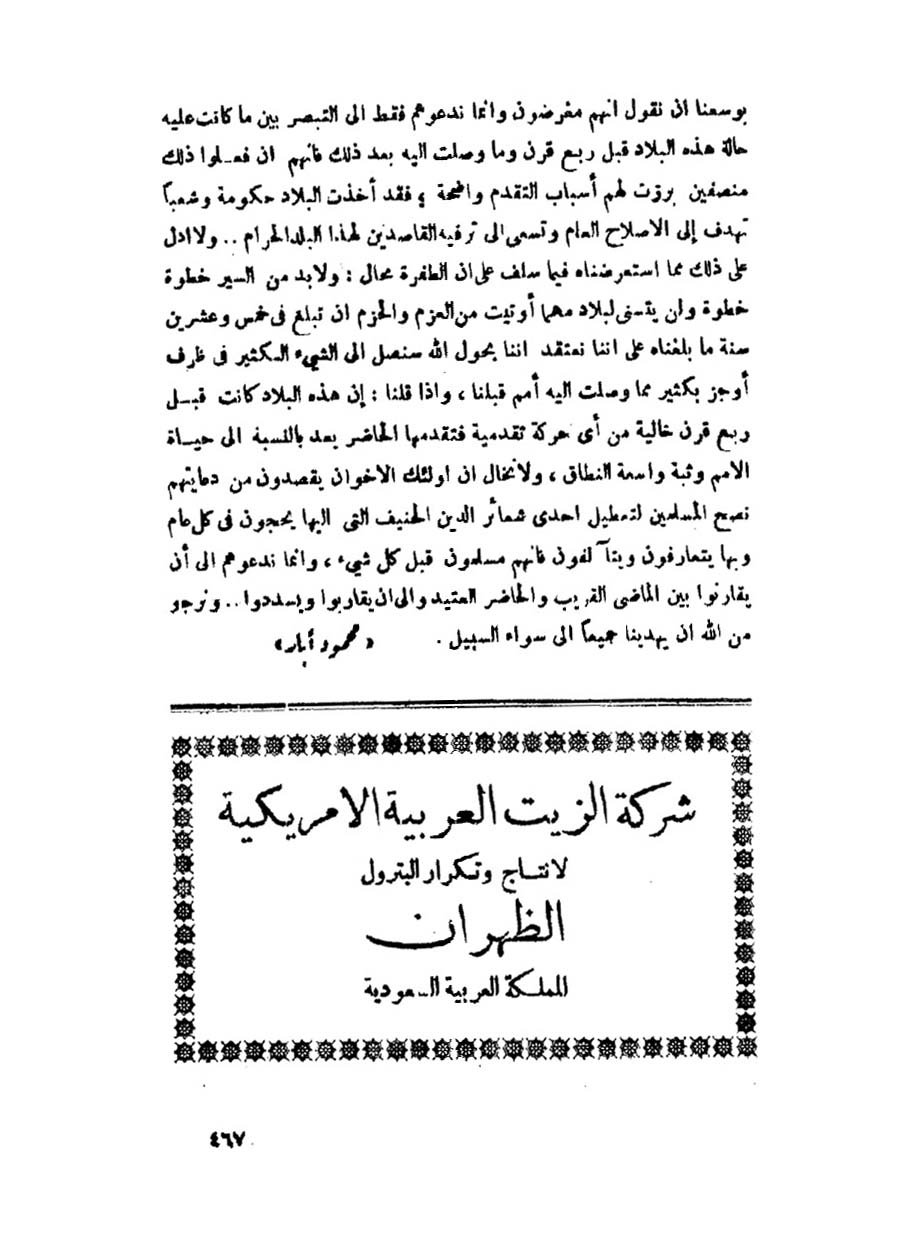 بوسعنا ان نقول انهم مغرضون وانما ندعوهم فقط الى التبصر بين ما كانت عليه
حالة هذه البلاد قبل ربع قرن وما وصلت اليه بعد ذلك فانهم ان فعلوا ذلك
منصفين برزت لهم أسباب التقدم واضحة ، فقد أخذت البلاد حكومة وشعباً
تهدف إلى الاصلاح العام وتسعى الى ترفيه القاصدين لهذا البلد الحرام .. ولا ادل
على ذلك مما استعرضناه فيما سلف على ان الطفرة محال : ولا بد من السير خطوة
خطوة ولن يتسنى لبلاد مهما أوتيت من العزم والحزم ان تبلغ فى خمس وعشرين
سنة ما بلغناه على اننا نعتقد اننا بحول الله سنصل الى الشيء الكثير فى ظرف
أوجز بكثير مما وصلت اليه أمم قبلنا ، واذا قلنا : إن هذه البلاد كانت قبل
ربع قرن خالية من أى حركة تقدمية فتقدمها الحاضر يعد بالنسبة الى حياة
الامم وثبة واسعة النطاق ، ولا نخال ان اولئك الاخوان يقصدون من دعايتهم
نصح المسلمين لتعطيل احدى شعائر الدين الحنيف التى اليها يحجون فى كل عام
وبها يتعارفون ويتآلفون فانهم مسلمون قبل كل شيء ، وانما ندعوهم الى أن
يقارنوا بين الماضى القريب والحاضر العتيد والى ان يقاربوا ويسددوا .. ونرجو
من الله ان يهدينا جميعاً الى سواء السبيل . « محمود أبار »
شركة الزيت العربية الامريكية
لانتاج وتكرار البترول
الظهران
المملكة العربية السعودية
٤٦٧